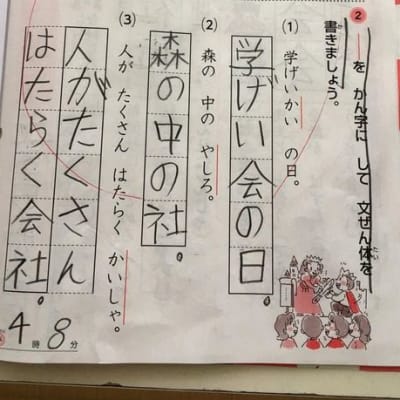 2 ━を かん字に して 文ぜん体を
書きましょう。
(1) 学げいかい の日。
学げい会の日。
(2) 森の 中の やしろ。
森の中の社。
(3) 人が たくさん はたらく かいしゃ。
人がたくさん
はたらく会社。
4時8分